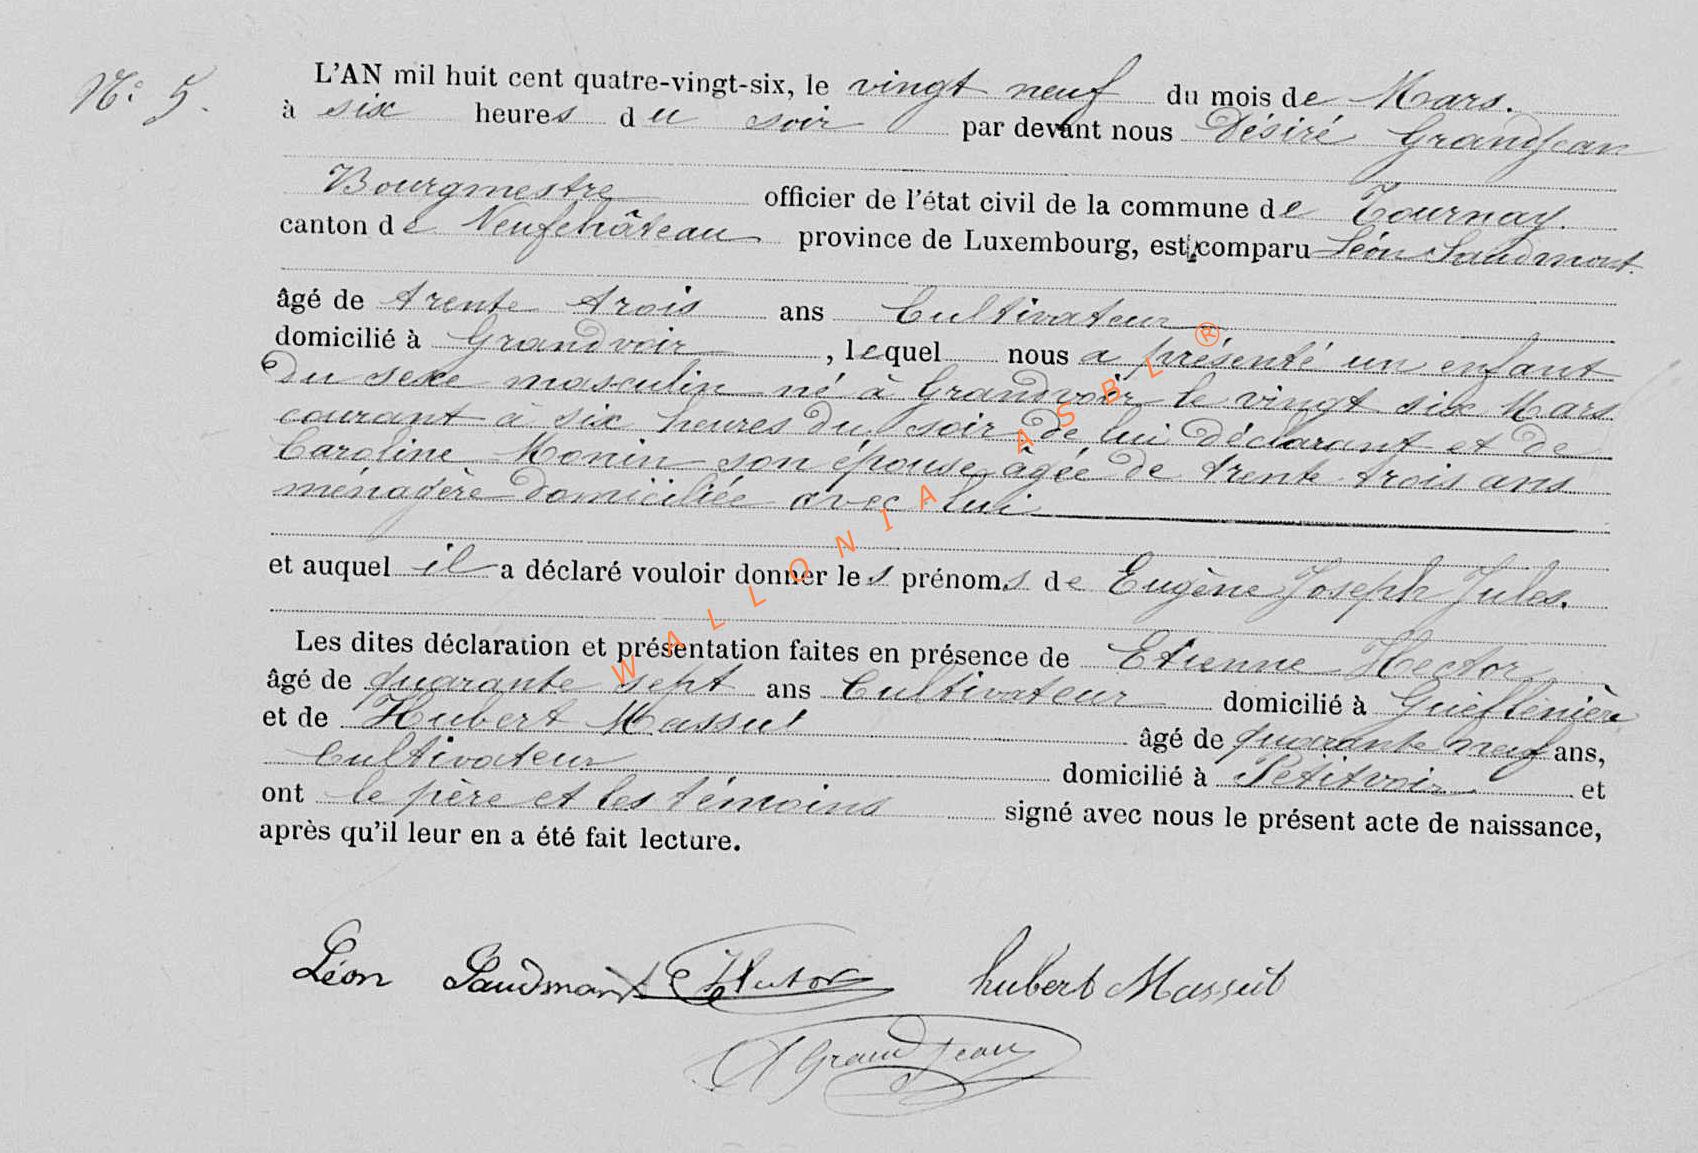 N.° 5.
L'AN mil huit cent quatre-vingt-six, le vingt neuf du mois de Mars.
à six heures du soir par devant nous Désiré Grandjean
Bourgmestre officier de l'état civil de la commune de Tournay.
canton de Neufchâteau province de Luxembourg, est comparu Léon Saudmont.
âgé de trente trois ans Cultivateur
domicilié à Grandvoir, lequel nous a présenté un enfant
du sexe masculin né à Grandvoir le vingt six Mars
courant à six heures du soir de lui déclarant et de
Caroline Monin son épouse âgée de trente trois ans
ménagère domiciliée avec lui
et auquel il a déclaré vouloir donner les prénoms de Eugène Joseph Jules.
Les dites déclaration et présentation faites en présence de Etienne Hector
âgé de quarante sept ans Cultivateur domicilié à
et de Hubert Massut âgé de quarante neuf ans,
Cultivateur domicilié à Petitvoir et
ont le père et les témoins signé avec nous le présent acte de naissance,
après qu'il leur en a été fait lecture.
Léon Saudmont Hector hubert Massut
Grandjean
WALLONIA ASBL ®